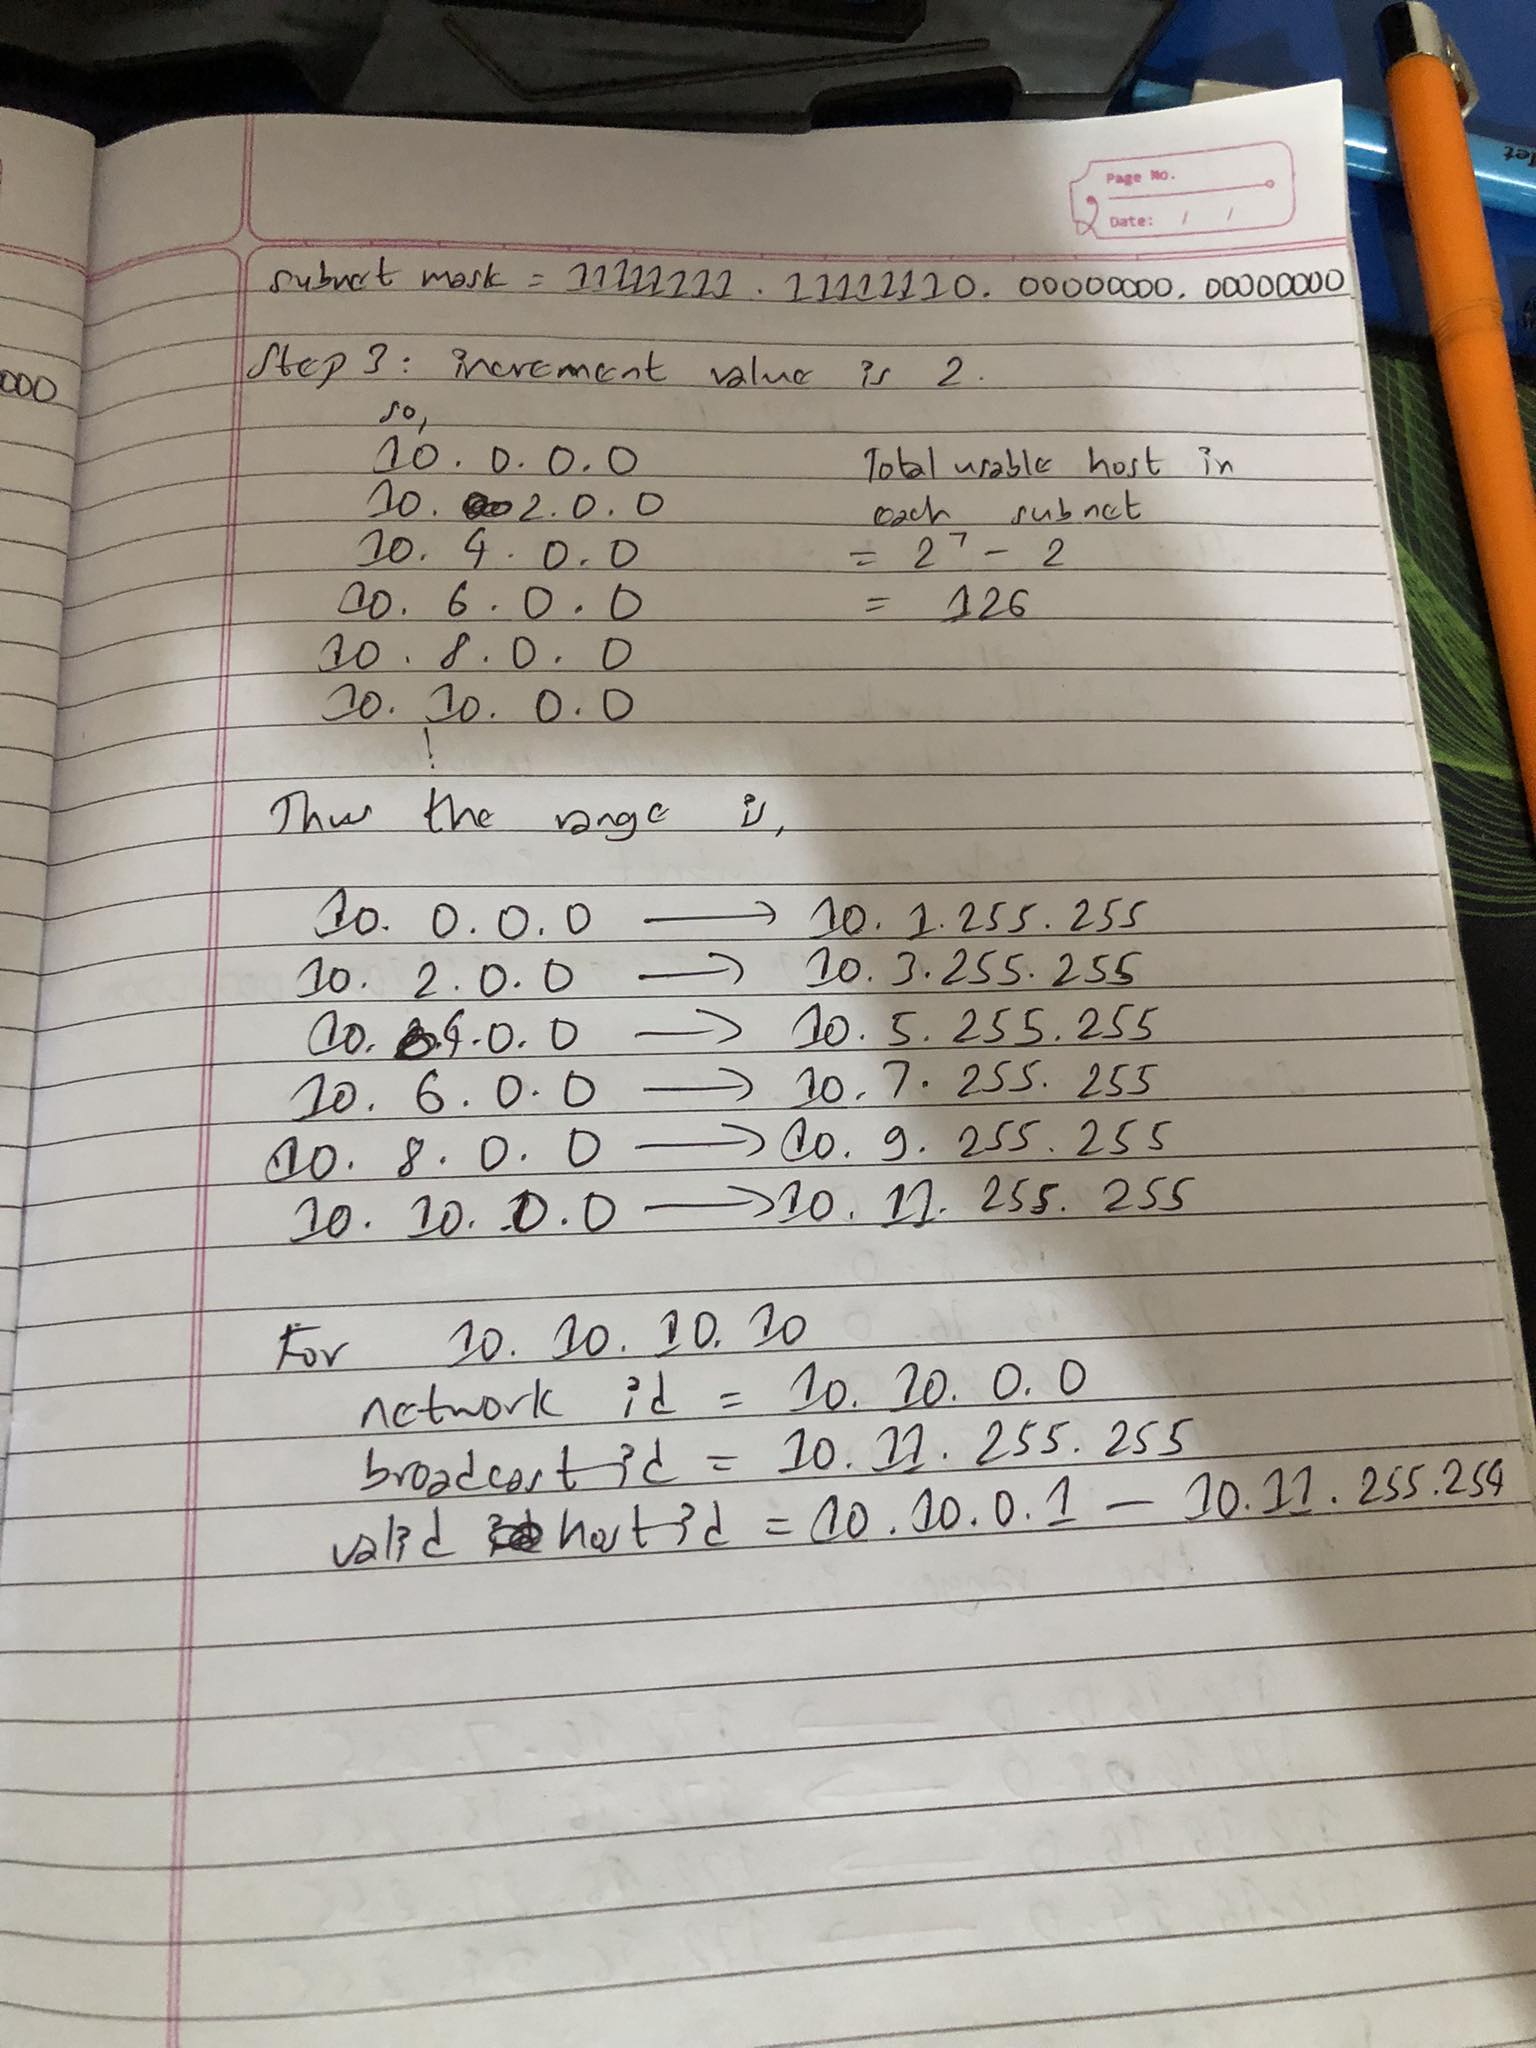 Page No.
Date: / /
000
subnet mask = 11111111.11111110.00000000.00000000
Step 3: increment value is 2.
so,
10.0.0.0
10.2.0.0
10.4.0.0
10.6.0.0
10.8.0.0
10.10.0.0
Total usable host in
each subnet
= 2⁷ - 2
= 126
Thus the range is,
10.0.0.0 → 10.1.255.255
10.2.0.0 → 10.3.255.255
10.4.0.0 → 10.5.255.255
10.6.0.0 → 10.7.255.255
10.8.0.0 → 10.9.255.255
10.10.0.0 → 10.11.255.255
For 10.10.10.10
network id = 10.10.0.0
broadcast id = 10.11.255.255
valid host id = 10.10.0.1 – 10.11.255.254